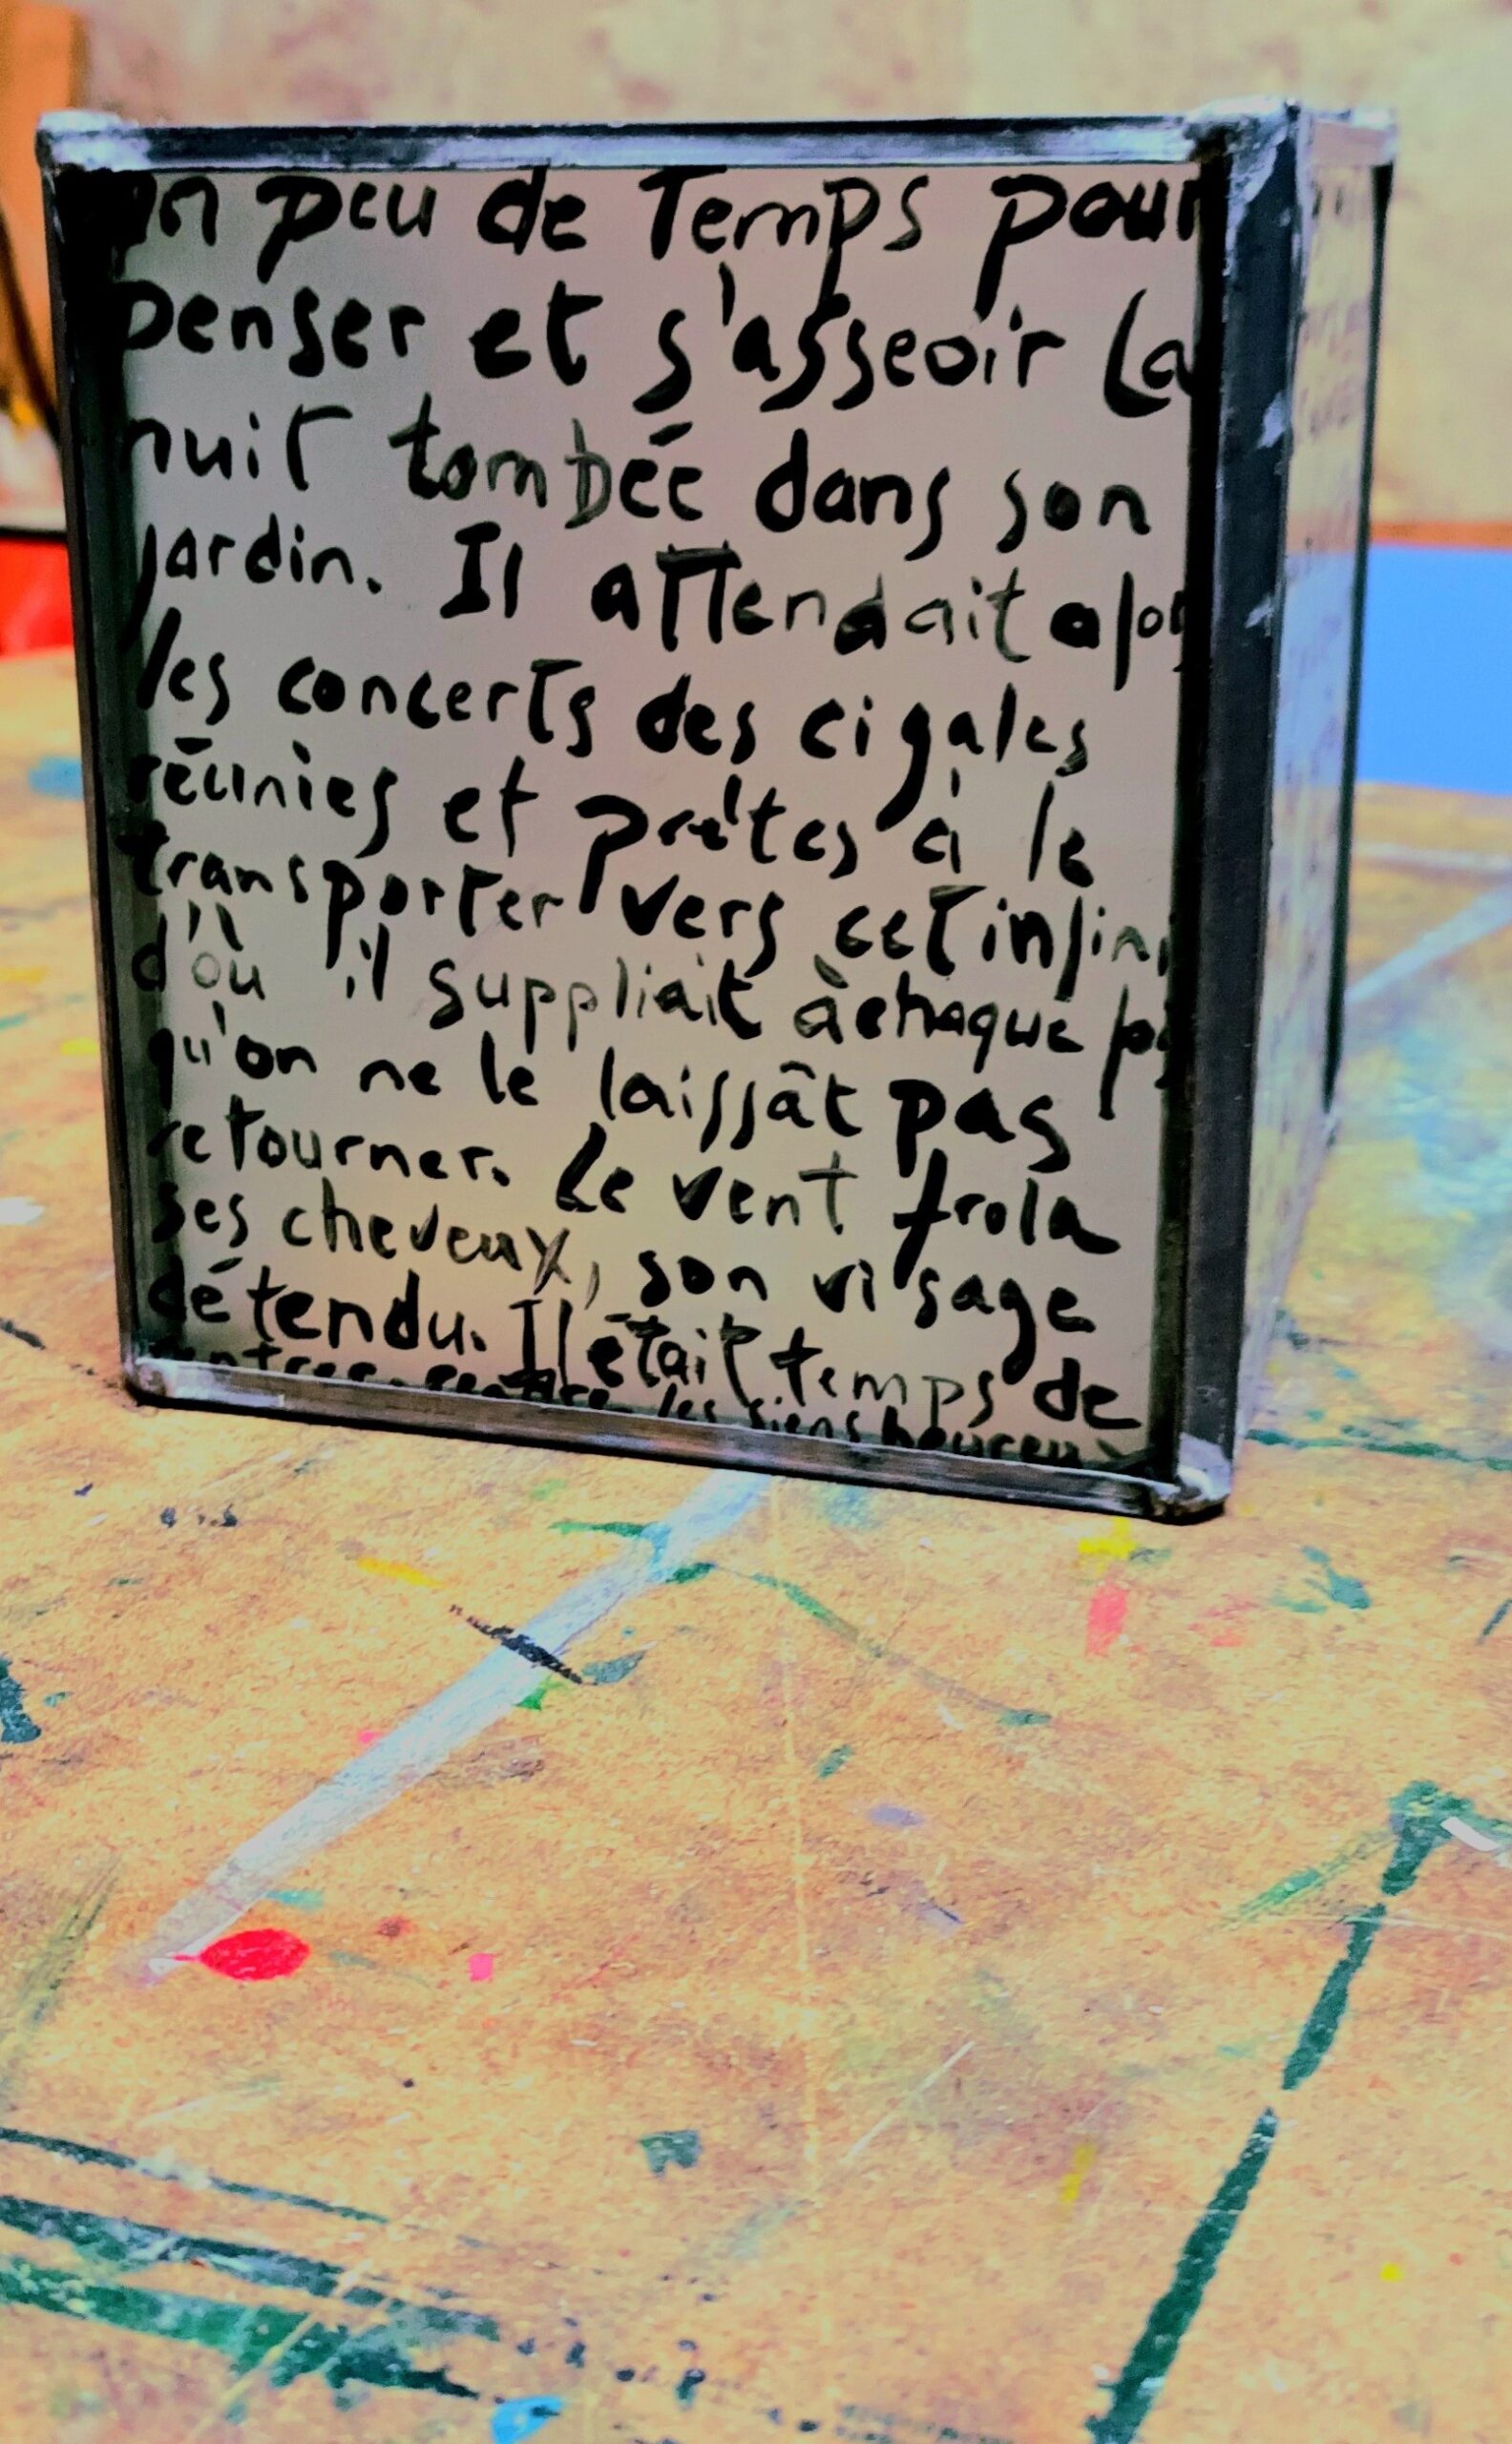 un peu de Temps pour
penser et s'asseoir La
nuit tombée dans son
jardin. Il attendait alors
les concerts des cigales
réunies et prêtes à le
transporter vers cet infini
d'où il suppliait à chaque
qu'on ne le laissât pas
retourner. Le vent frola
ses cheveux, son visage
détendu. Il était temps de
les siens heureux